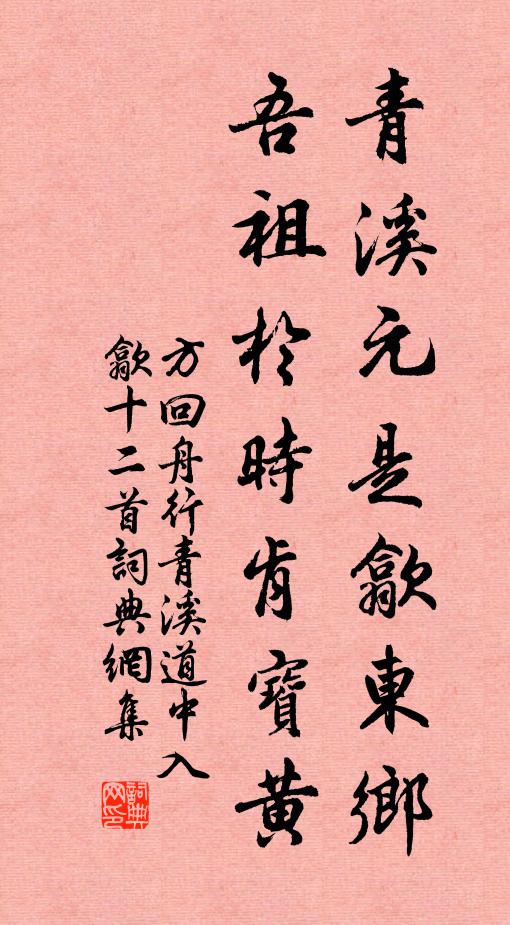 青溪元是歙東鄉
吾祖於時肯寶黃
方回舟行青溪道中入
歙十二首詞典網集
詞典网印